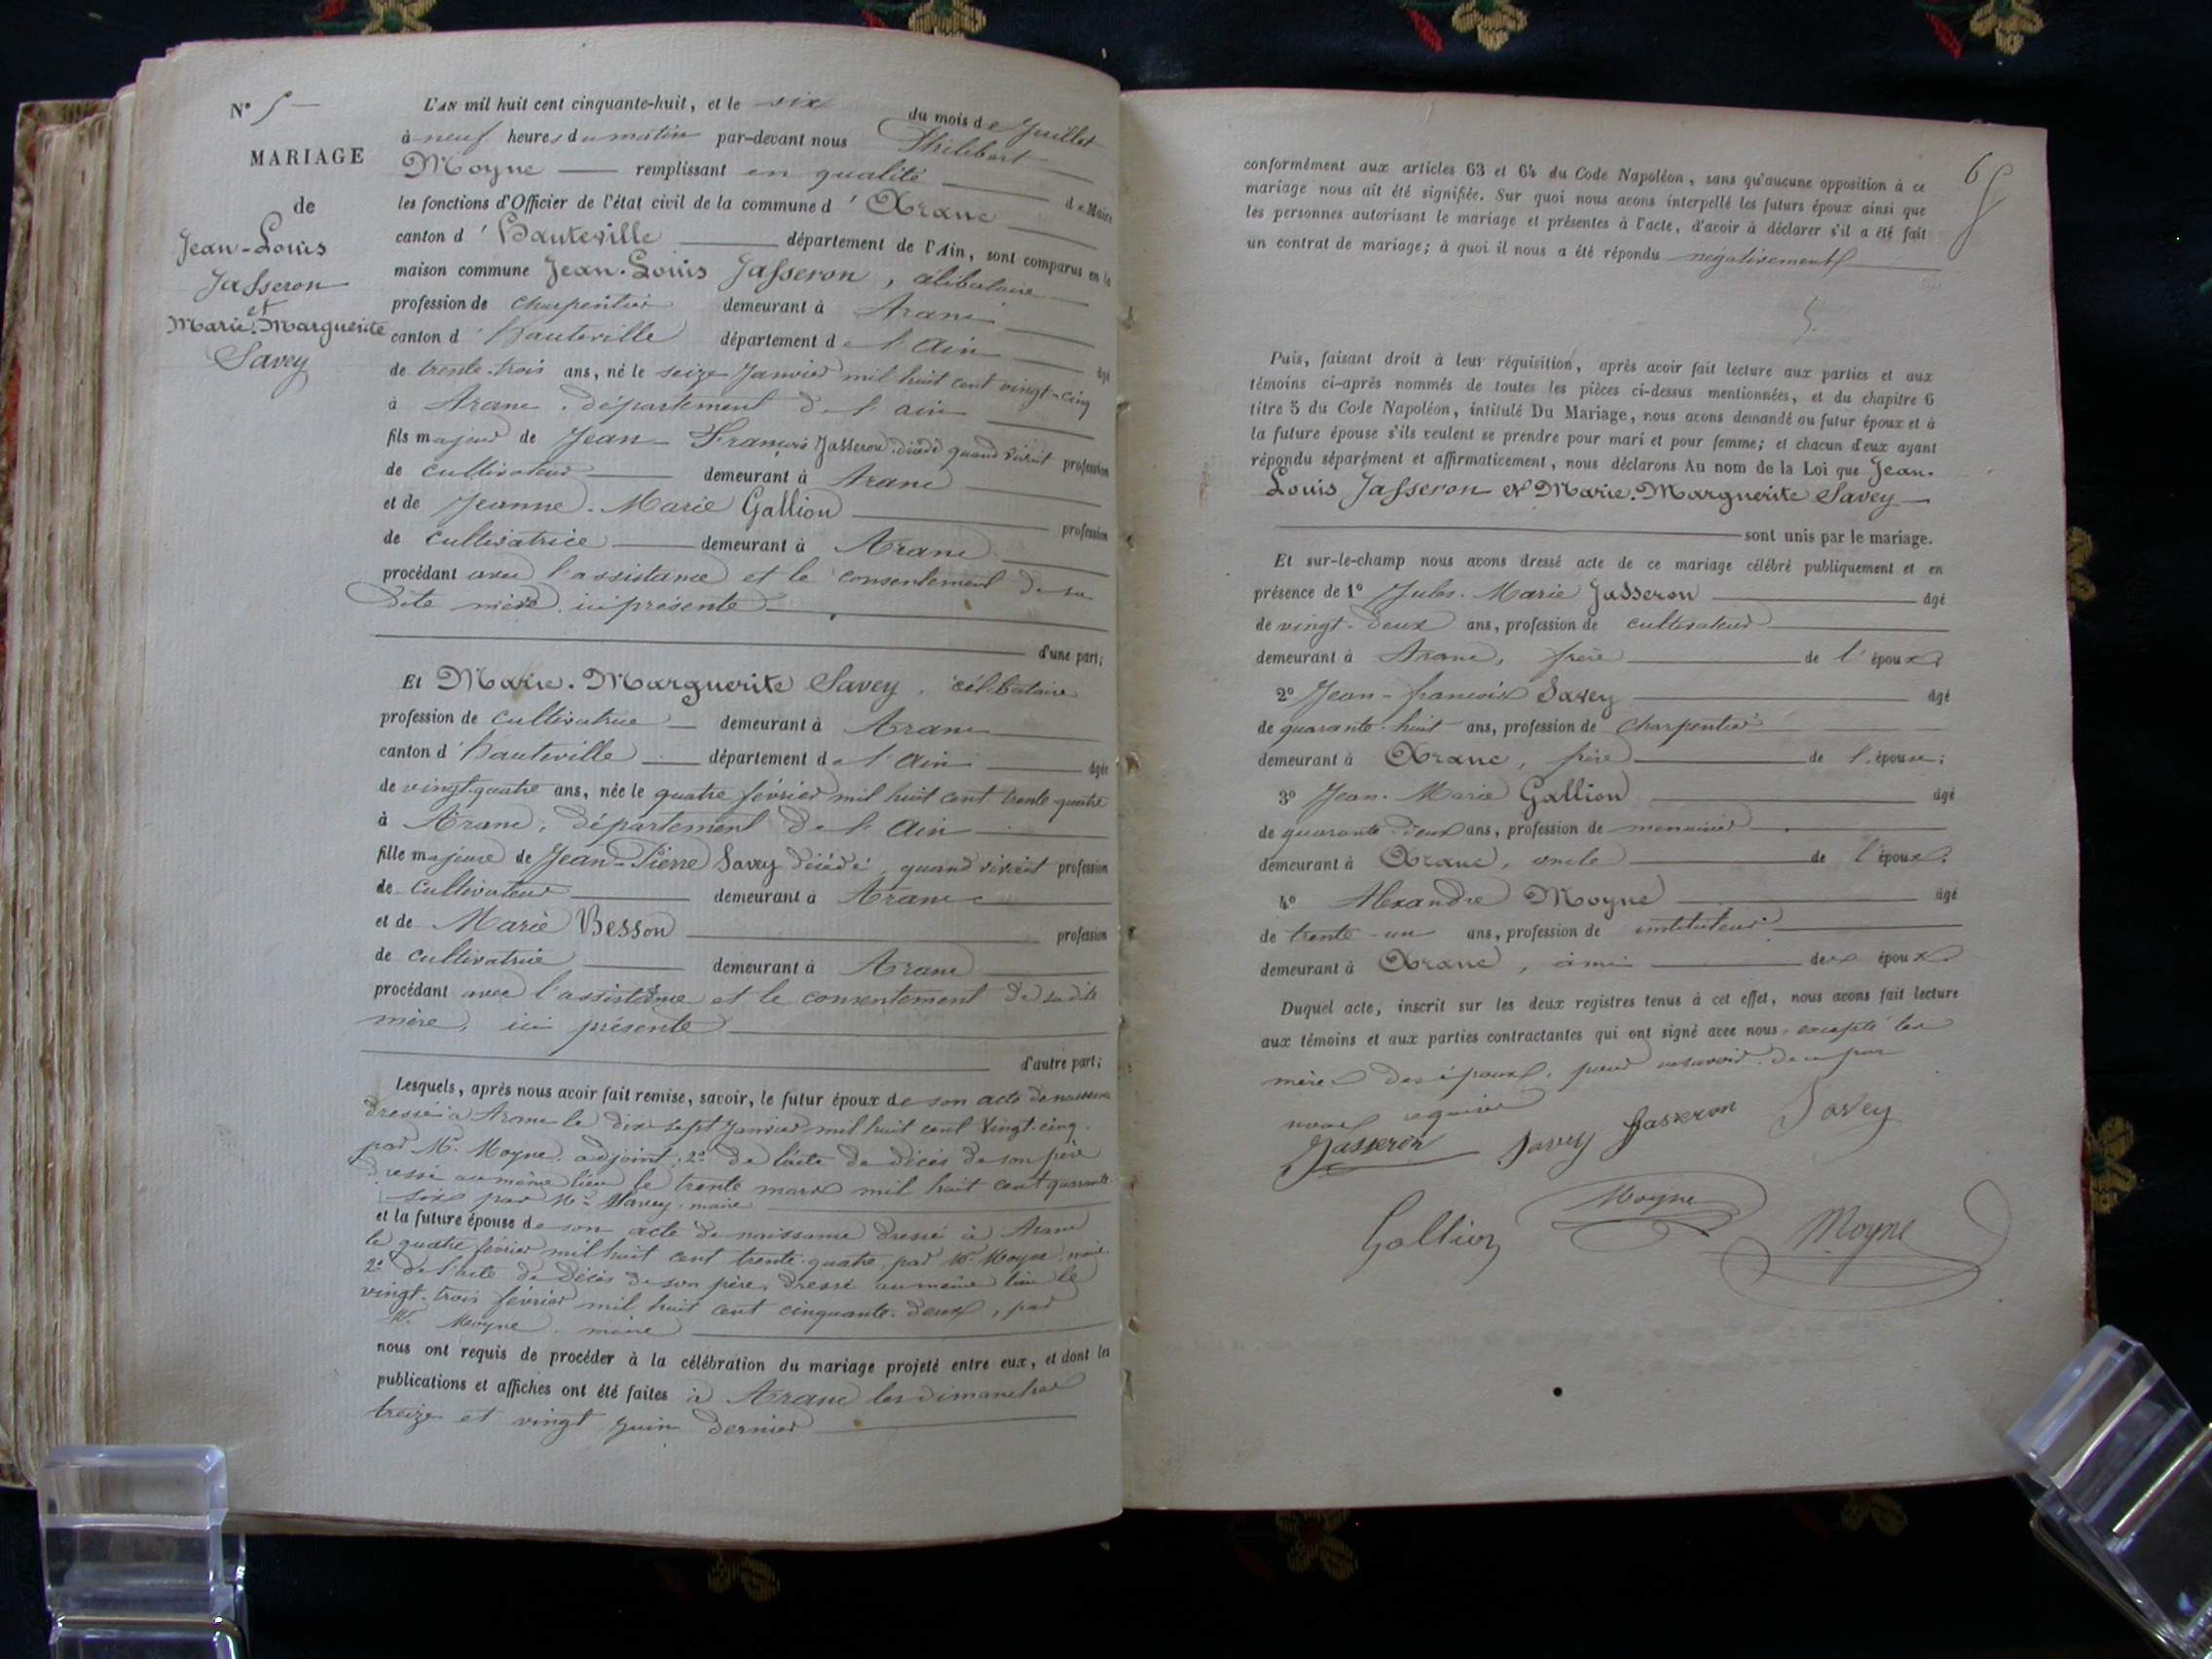 N° 5
MARIAGE
de
Jean-Louis
Jasseron
et
Marie-Marguerite
Savey
L'AN mil huit cent cinquante-huit, et le six du mois de Juillet
à neuf heures du matin par-devant nous Philibert
Moyne remplissant en qualité de Maire
les fonctions d'Officier de l'état civil de la commune d'Aranc
canton d'hauteville département de l'Ain, sont comparus en la
maison commune Jean-Louis Jasseron, célibataire
profession de charpentier demeurant à Aranc
canton d'hauteville département de l'Ain âgé
de trente-trois ans, né le seize Janvier mil huit cent vingt-cinq
à Aranc, département de l'ain
fils majeur de Jean-François Jasseron, décédé quand vivait profession
de cultivateur demeurant à Aranc
et de Jeanne-Marie Gallion profession
de cultivatrice demeurant à Aranc
procédant avec l'assistance et le consentement de sa
dite mère, ici présente
d'une part;
Et Marie-Marguerite Savey, célibataire
profession de cultivatrice demeurant à Aranc
canton d'hauteville département de l'Ain âgée
de vingt-quatre ans, née le quatre février mil huit cent trente-quatre
à Aranc, département de l'Ain
fille majeure de Jean-Pierre Savey décédé, quand vivait profession
de cultivateur demeurant à Aranc
et de Marie Besson profession
de cultivatrice demeurant à Aranc
procédant avec l'assistance et le consentement de sadite
mère, ici présente
d'autre part;
Lesquels, après nous avoir fait remise, savoir, le futur époux de son acte de naissance
dressé à Aranc le dix sept Janvier mil huit cent vingt-cinq
par Mr. Moyne, adjoint; 2° de l'acte de décès de son père
dressé au même lieu le trente mars mil huit cent quarante
six par Mr. Savey, maire
et la future épouse de son acte de naissance dressé à Aranc
le quatre février mil huit cent trente-quatre, par Mr. Moyne, maire
2° de l'acte de décès de son père, dressé au même lieu le
vingt-trois février mil huit cent cinquante-deux, par
Mr. Moyne, maire
nous ont requis de procéder à la célébration du mariage projeté entre eux, et dont les
publications et affiches ont été faites à Aranc les dimanches
treize et vingt juin dernier
6
conformément aux articles 63 et 64 du Code Napoléon, sans qu'aucune opposition à ce
mariage nous ait été signifiée. Sur quoi nous avons interpellé les futurs époux ainsi que
les personnes autorisant le mariage et présentes à l'acte, d'avoir à déclarer s'il a été fait
un contrat de mariage; à quoi il nous a été répondu négativement
Puis, faisant droit à leur réquisition, après avoir fait lecture aux parties et aux
témoins ci-après nommés de toutes les pièces ci-dessus mentionnées, et du chapitre 6
titre 5 du Code Napoléon, intitulé Du Mariage, nous avons demandé au futur époux et à
la future épouse s'ils veulent se prendre pour mari et pour femme; et chacun d'eux ayant
répondu séparément et affirmativement, nous déclarons Au nom de la Loi que Jean-
Louis Jasseron et Marie-Marguerite Savey
sont unis par le mariage.
Et sur-le-champ nous avons dressé acte de ce mariage célébré publiquement et en
présence de 1° Jules-Marie Jasseron âgé
de vingt-deux ans, profession de cultivateur
demeurant à Aranc, frère de l'époux
2° Jean-françois Savey âgé
de quarante-huit ans, profession de Charpentier
demeurant à Aranc, frère de l'épouse;
3° Jean-Marie Gallion âgé
de quarante-deux ans, profession de menuisier
demeurant à Aranc, oncle de l'époux.
4° Alexandre Moyne âgé
de trente-un ans, profession de instituteur
demeurant à Aranc, ami des époux
Duquel acte, inscrit sur les deux registres tenus à cet effet, nous avons fait lecture
aux témoins et aux parties contractantes qui ont signé avec nous, excepté les
mères des époux, pour ne savoir, de ce par
nous requises
Jasseron Savey Jasseron Savey
Gallion Moyne Moyne